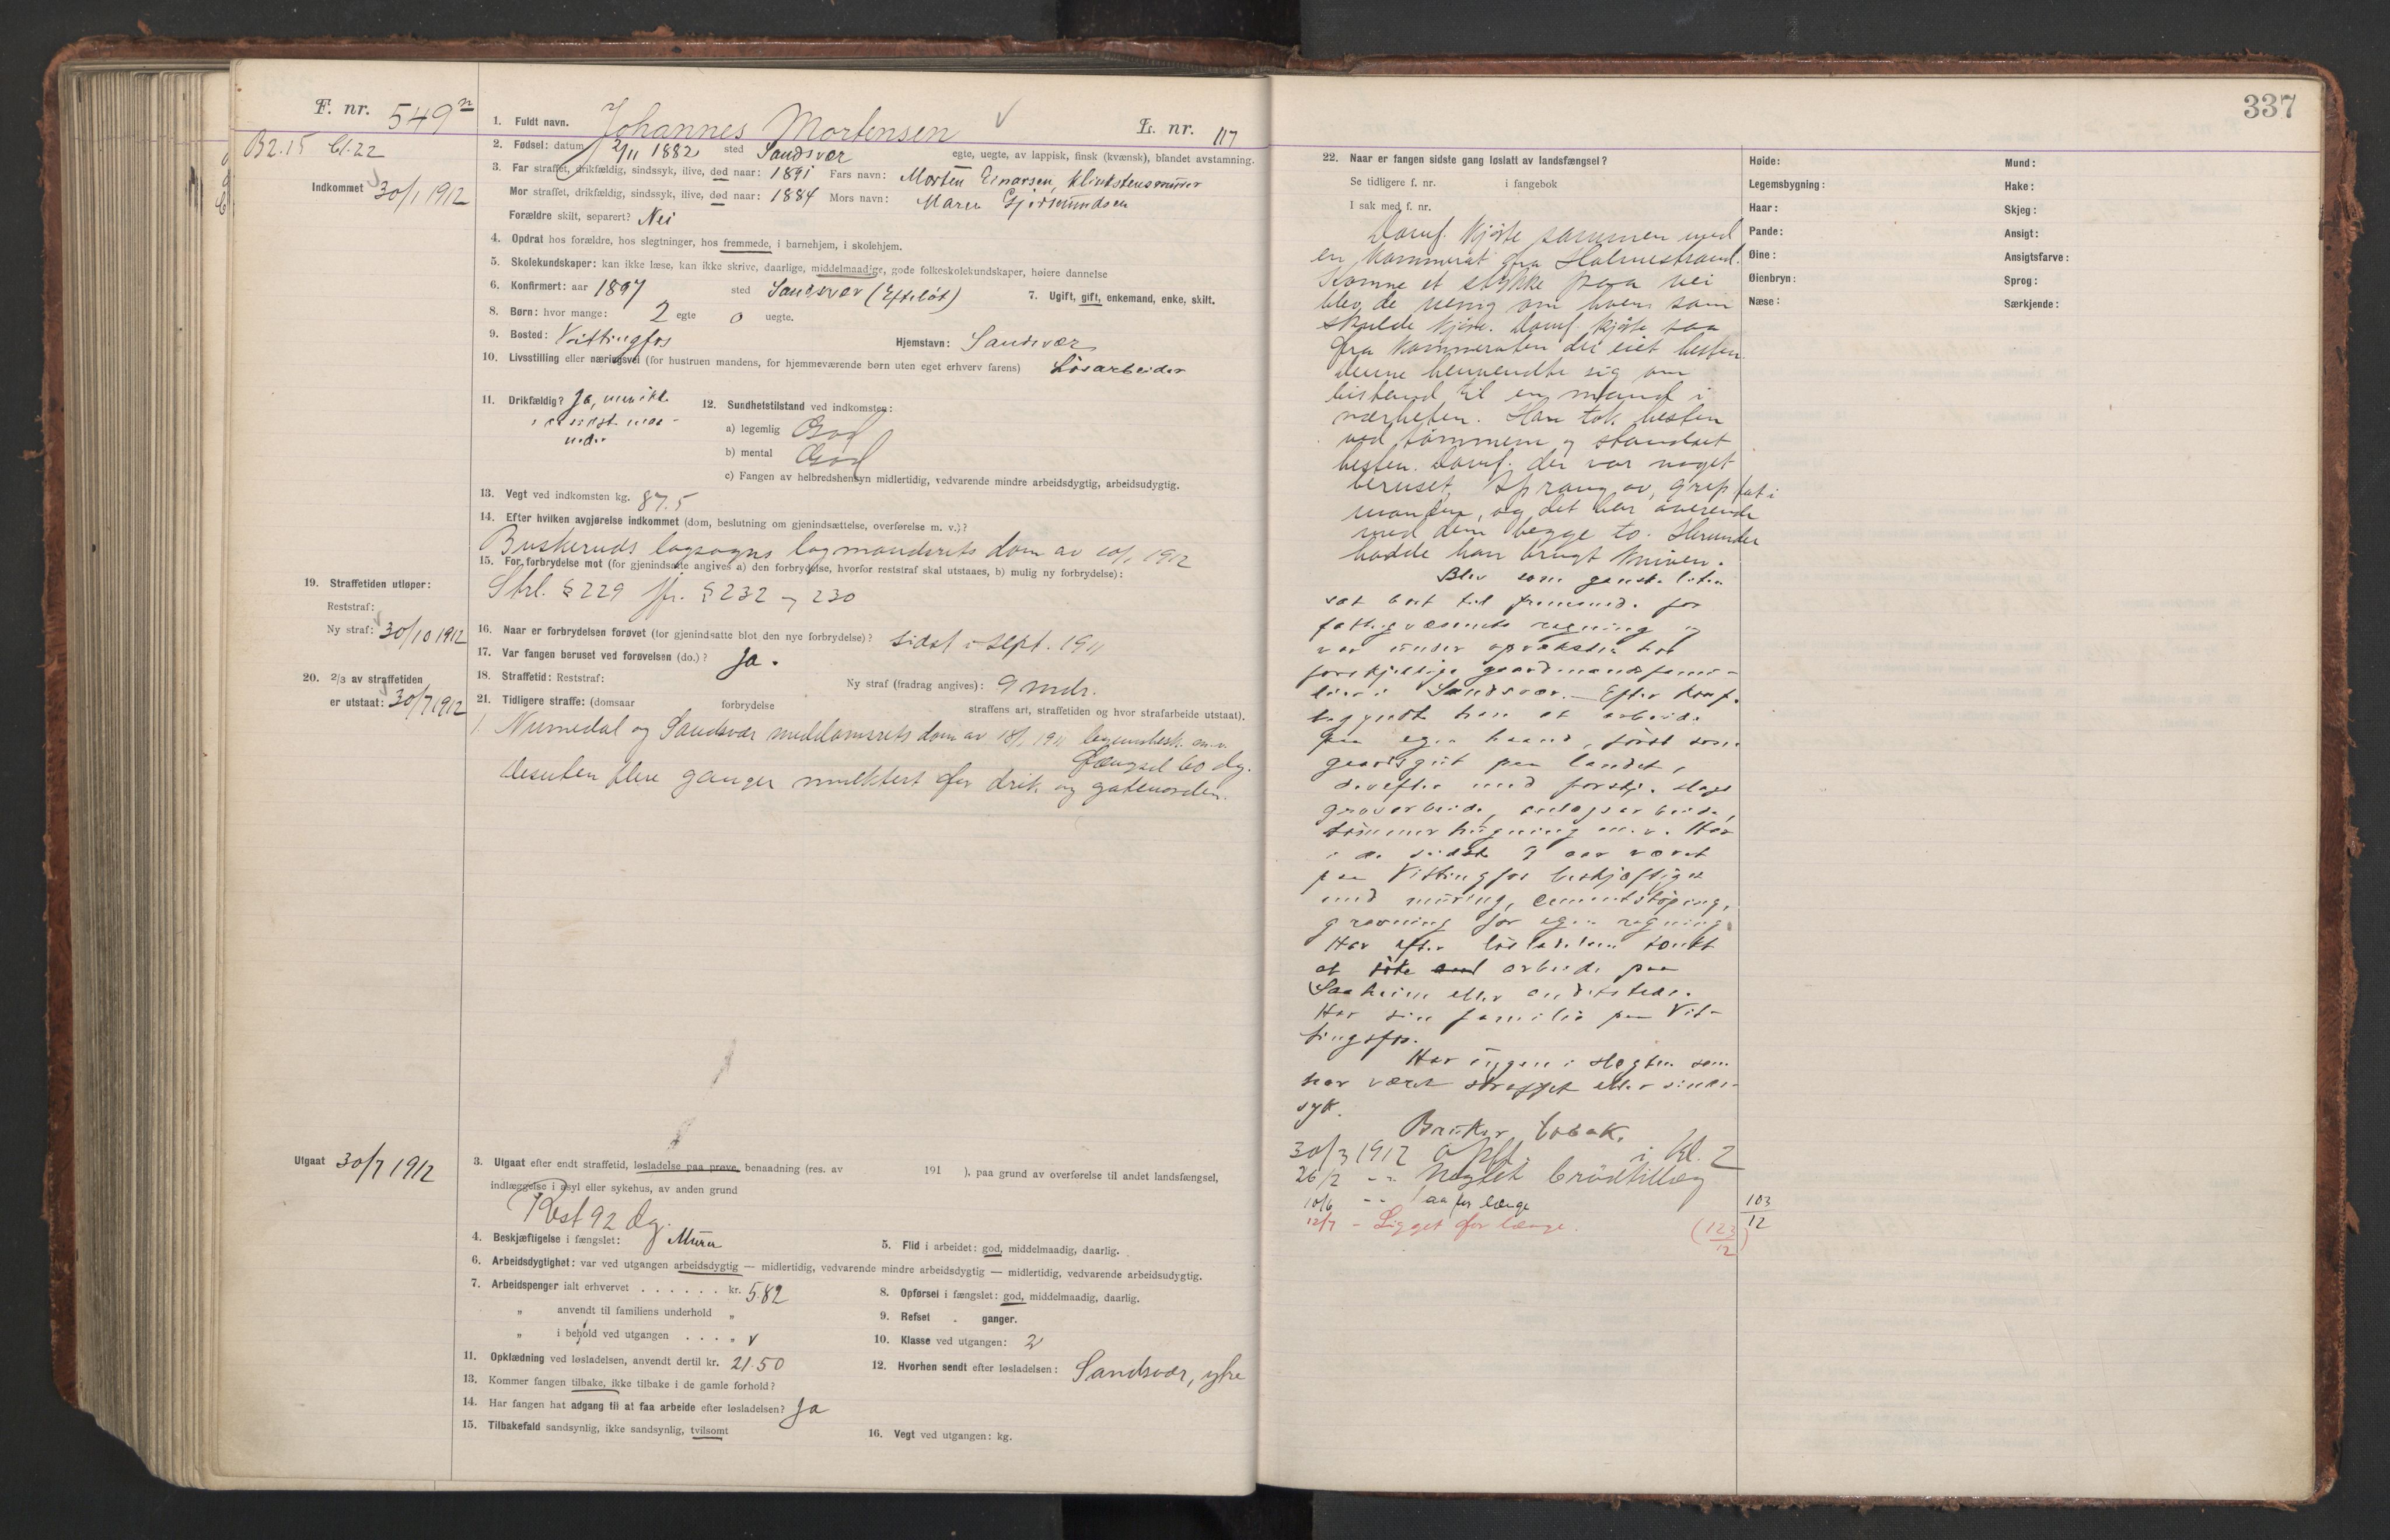 F. nr. 549
1. Fuldt navn. Johannes Mortensen L. nr. 117
B2.15 Cl.22
2. Fødsel: datum 2/11 1882 sted Sandsvær egte, uegte, av lappisk, finsk (kvænsk), blandet avstamning.
Indkommet 30/1 1912
3. Far straffet, drikfældig, sindssyk, ilive, død naar: 1891 Fars navn: Morten Einarsen,
Mor straffet, drikfældig, sindssyk, ilive, død naar: 1884 Mors navn: Maren Gjermundsen
Forældre skilt, separert? Nei
4. Opdrat hos forældre, hos slegtninger, hos fremmede, i barnehjem, i skolehjem.
5. Skolekundskaper: kan ikke læse, kan ikke skrive, daarlige, middelmaadige, gode folkeskolekundskaper, høiere dannelse
6. Konfirmert: aar 1897 sted Sandsvær (Efteløt) 7. Ugift, gift, enkemand, enke, skilt.
8. Børn: hvor mange: 2 egte 0 uegte.
9. Bosted: Vittingfos Hjemstavn: Sandsvær
10. Livsstilling eller næringsvei (for hustruen mandens, for hjemmeværende børn uten eget erhverv farens) Løsarbeider
11. Drikfældig? Ja, men ikke
i de sidste maa-
neder
12. Sundhetstilstand ved indkomsten:
a) legemlig God
b) mental God
c) Fangen av helbredshensyn midlertidig, vedvarende mindre arbeidsdygtig, arbeidsudygtig.
13. Vegt ved indkomsten kg. 87.5
14. Efter hvilken avgjørelse indkommet (dom, beslutning om gjenindsættelse, overførelse m. v.)?
Buskeruds lagsogns lagmandsrets dom av 20/1 1912
15. For forbrydelse mot (for gjenindsatte angives a) den forbrydelse, hvorfor reststraf skal utstaaes, b) mulig ny forbrydelse):
Strl. § 229 jfr. § 232 og 230
19. Straffetiden utløper:
Reststraf:
Ny straf: 30/10 1912
16. Naar er forbrydelsen forøvet (for gjenindsatte blot den nye forbrydelse)? sidst i sept. 1911
17. Var fangen beruset ved forøvelsen (do.)? Ja.
18. Straffetid: Reststraf: Ny straf (fradrag angives): 9 mdr.
20. 2/3 av straffetiden
er utstaat: 30/7 1912
21. Tidligere straffe: (domsaar forbrydelse straffens art, straffetiden og hvor strafarbeide utstaat).
1. Numedal og Sandsvær meddomsrets dom av 18/1 1911 legemsbesk. m.v.
Fængsel 60 dg.
Desuten flere ganger mulktert for drik og gateuorden.
Utgaat 30/7 1912
3. Utgaat efter endt straffetid, løsladelse paa prøve, benaadning (res. av 191 ), paa grund av overførelse til andet landsfængsel,
indlæggelse i asyl eller sykehus, av anden grund
Rest 92 dg.
4. Beskjæftigelse i fængslet: Murer 5. Flid i arbeidet: god, middelmaadig, daarlig.
6. Arbeidsdygtighet: var ved utgangen arbeidsdygtig — midlertidig, vedvarende mindre arbeidsdygtig — midlertidig, vedvarende arbeidsudygtig.
7. Arbeidspenger ialt erhvervet . . . . . . kr. 5.82 8. Opførsel i fængslet: god, middelmaadig, daarlig.
„ anvendt til familiens underhold „ 9. Refset . ganger.
„ i behold ved utgangen . . . „ v 10. Klasse ved utgangen: 2
11. Opklædning ved løsladelsen, anvendt dertil kr. 21.50 12. Hvorhen sendt efter løsladelsen: Sandsvær, ytre
13. Kommer fangen tilbake, ikke tilbake i de gamle forhold?
14. Har fangen hat adgang til at faa arbeide efter løsladelsen? Ja
15. Tilbakefald sandsynlig, ikke sandsynlig, tvilsomt 16. Vegt ved utgangen: kg.
337
22. Naar er fangen sidste gang løslatt av landsfængsel?
Se tidligere f. nr. i fangebok
I sak med f. nr.
Høide: Mund:
Legemsbygning: Hake:
Haar: Skjeg:
Pande: Ansigt:
Øine: Ansigtsfarve:
Øienbryn: Sprog:
Næse: Særkjende:
Domf. kjørte sammen med
en kammerat fra Holmestrand.
Komne et stykke paa vei
blev de uenig om hvem som
skulde kjøre. Domf. kjørte saa
fra kammeraten der eiet hesten.
Denne henvendte sig om
bistand til en mand i
nærheten. Han tok hesten
ved tømmene og standset
hesten. Domf. der var noget
beruset, sprang av, grep fat i
manden, og det bar overende
med dem begge to. Herunder
hadde han brugt kniven.
Blev som ganske liten
sat bort til fremmede for
fattigvæsenets regning og
var under opvæksten hos
forskjellige gaardmandsfami-
lier i Sandsvær. Efter konf.
begyndte han at arbeide
paa egen haand, først som
gaardsgut paa landet,
derefter med forskj. slags
gravarbeide, anlægsarbeide,
tømmerhugning m.v. Har
i de sidste 9 aar været
paa Vittingfos beskjæftiget
med muring, cementstøping,
gravning for egen regning.
Har efter løsladelsen tænkt
at søke arbeide paa
Saaheim eller andetsteds.
Har sin familie paa Vit-
tingfos.
Har ingen i slegten som
har været straffet eller sinds-
syk.
Bruker tobak.
30/3 1912 Opfl. i kl. 2
26/2 -"- Negtet brødtillæg
10/6 -"- for længe 103/12
12/7 - Ligget for længe. (123/12)